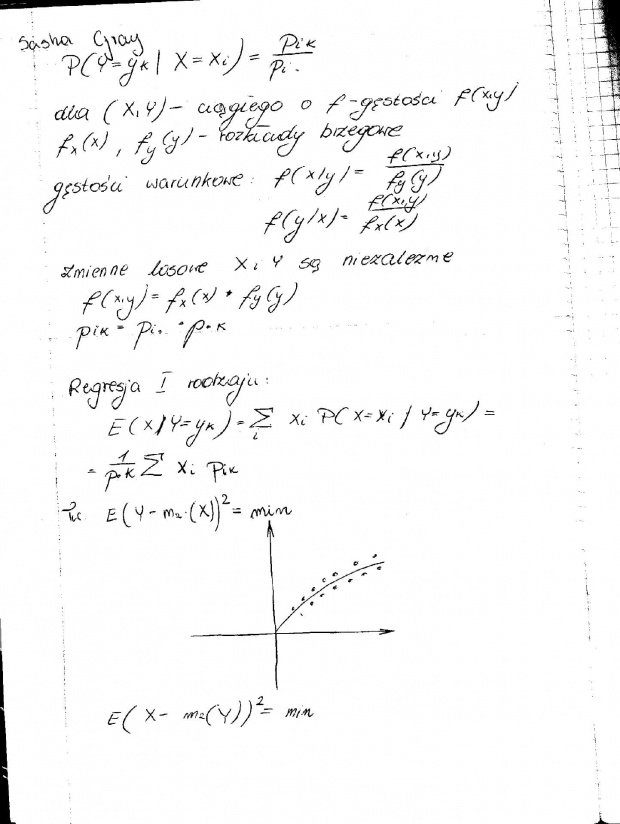 Sasha Gray
P(Y=yk | X=xi) = pik / pi.
dla (X,Y) - ciągłego o f-gęstości f(x,y)
fx(x), fy(y) - rozkłady brzegowe
gęstości warunkowe: f(x/y) = f(x,y) / fy(y)
f(y/x) = f(x,y) / fx(x)
zmienne losowe X i Y są niezależne
f(x,y) = fx(x) • fy(y)
pik = pi. • p•k
Regresja I rodzaju:
E(X/Y=yk) = ∑i xi P(X=xi / Y=yk) =
= 1/p•k ∑ xi pik
E(Y-m₂(X))² = min
E(X- m₂(Y))² = min